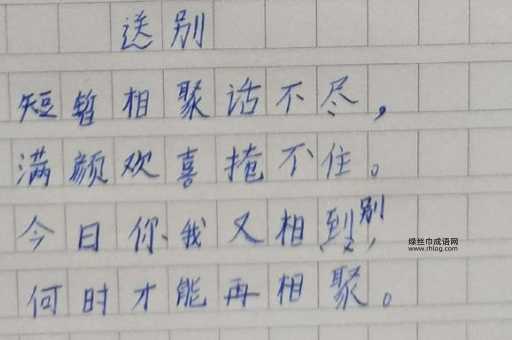 送别
短暂相聚话不尽，
满颜欢喜掩不住。
今日你我又相别，
何时才能再相聚。
绿丝巾成语网
www.rhlog.com